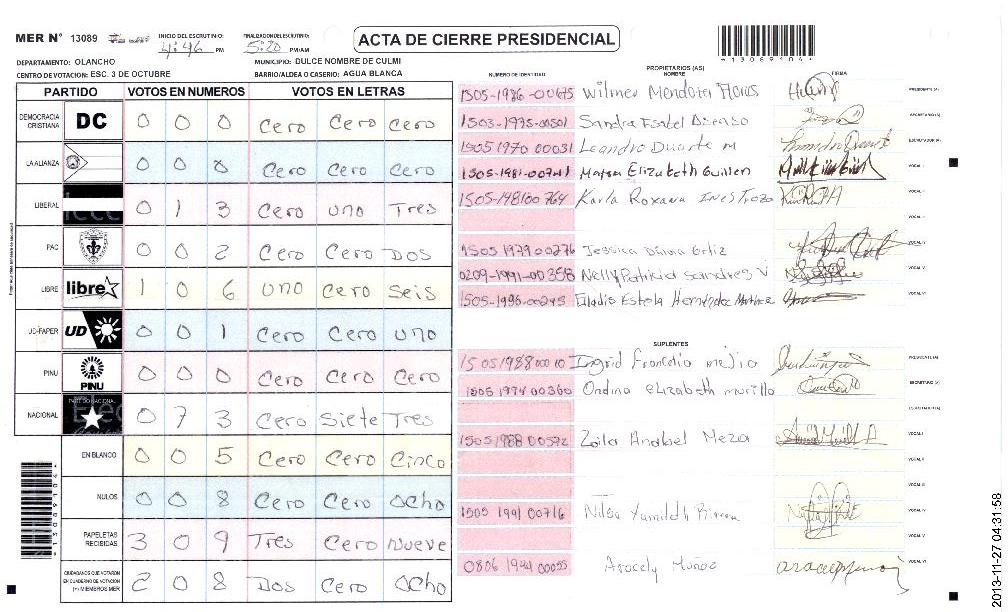 MER N° 13089 INICIO DEL ESCRUTINIO: 4:46 PM FINALIZACION DEL ESCRUTINIO: 5:20 PM/AM
ACTA DE CIERRE PRESIDENCIAL
13089104
DEPARTAMENTO: OLANCHO MUNICIPIO: DULCE NOMBRE DE CULMI
CENTRO DE VOTACION: ESC. 3 DE OCTUBRE BARRIO/ALDEA O CASERIO: AGUA BLANCA
PARTIDO VOTOS EN NUMEROS VOTOS EN LETRAS
DEMOCRACIA CRISTIANA DC 0 0 0 Cero Cero Cero
LA ALIANZA 0 0 0 Cero Cero Cero
LIBERAL 0 1 3 Cero uno Tres
PAC 0 0 2 Cero Cero DOS
LIBRE libre 1 0 6 uno Cero Seis
UD-FAPER UD 0 0 1 Cero Cero uno
PINU PINU 0 0 0 Cero Cero Cero
NACIONAL PARTIDO NACIONAL 0 7 3 Cero Siete Tres
EN BLANCO 0 0 5 Cero Cero Cinco
NULOS 0 0 8 Cero Cero Ocho
PAPELETAS RECIBIDAS 3 0 9 Tres Cero Nueve
CIUDADANOS QUE VOTARON EN CUADERNO DE VOTACION (+) MIEMBROS MER 2 0 8 Dos Cero Ocho
NUMERO DE IDENTIDAD PROPIETARIOS (AS) NOMBRE FIRMA
1505-1986-00675 Wilmer Mendoza Flores PRESIDENTE (A)
1503-1975-00501 Sandra Isabel SECRETARIO (A)
1505 1970 00031 Leandro Duarte M ESCRUTADOR (A)
1505-1981-00741 Mayra Elizabeth Guillen VOCAL I
1505-1981 00764 Karla Roxana Inestroza VOCAL II
VOCAL III
1505 1979 00276 Jessica Ortiz VOCAL IV
0209-1991-00358 Nelly Patricia V VOCAL V
1505-1996-00245 Gladis Estela Hernández VOCAL VI
SUPLENTES
1505 1988 000 10 Ingrid PRESIDENTE (A)
1505 1974 00360 Ondina elizabeth murillo SECRETARIO (A)
ESCRUTADOR (A)
1505 1988 00592 Zoila Anabel Meza VOCAL I
VOCAL II
VOCAL III
1505 1991 00716 Yamileth VOCAL IV
VOCAL V
0806 1994 00055 Aracely Muñoz VOCAL VI
2013-11-27 04:31:58